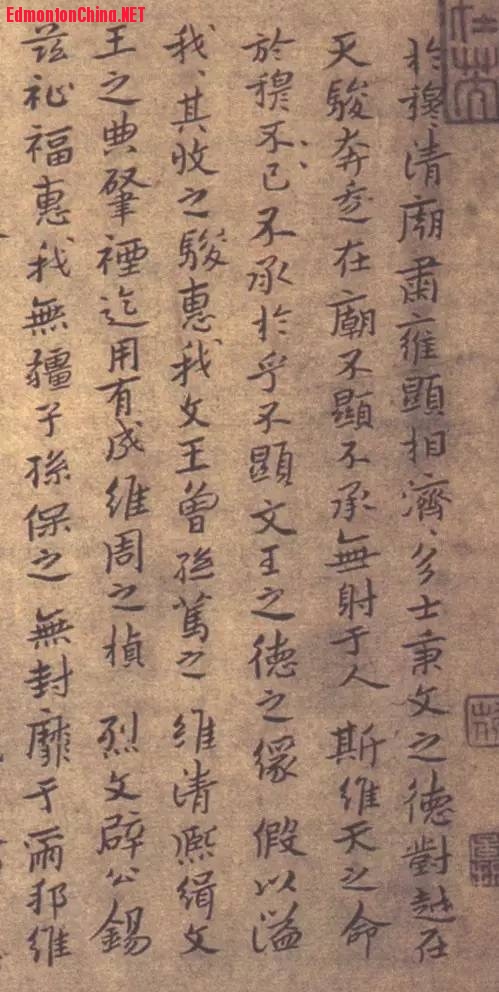 EdmontonChina.NET
於穆、清廟肅雝顯相濟、多士秉文之德對越在
天駿奔走在廟不顯不承無射于人 斯維天之命
於穆不已不承於乎不顯文王之德之 假以溢
我、其收之駿惠我文王曾孫篤之 維清熙緝文
王之典肇禋迄用有成維周之楨 烈文辟公錫
茲祉福惠我無疆子孫保之 無封靡于爾邦維